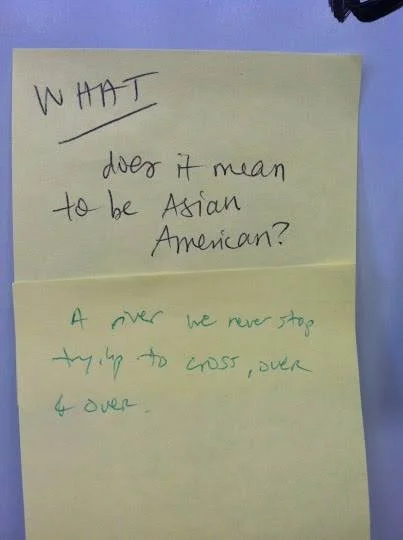 WHAT
does it mean
to be Asian
American?
A river we never stop
trying to cross, over
& over.